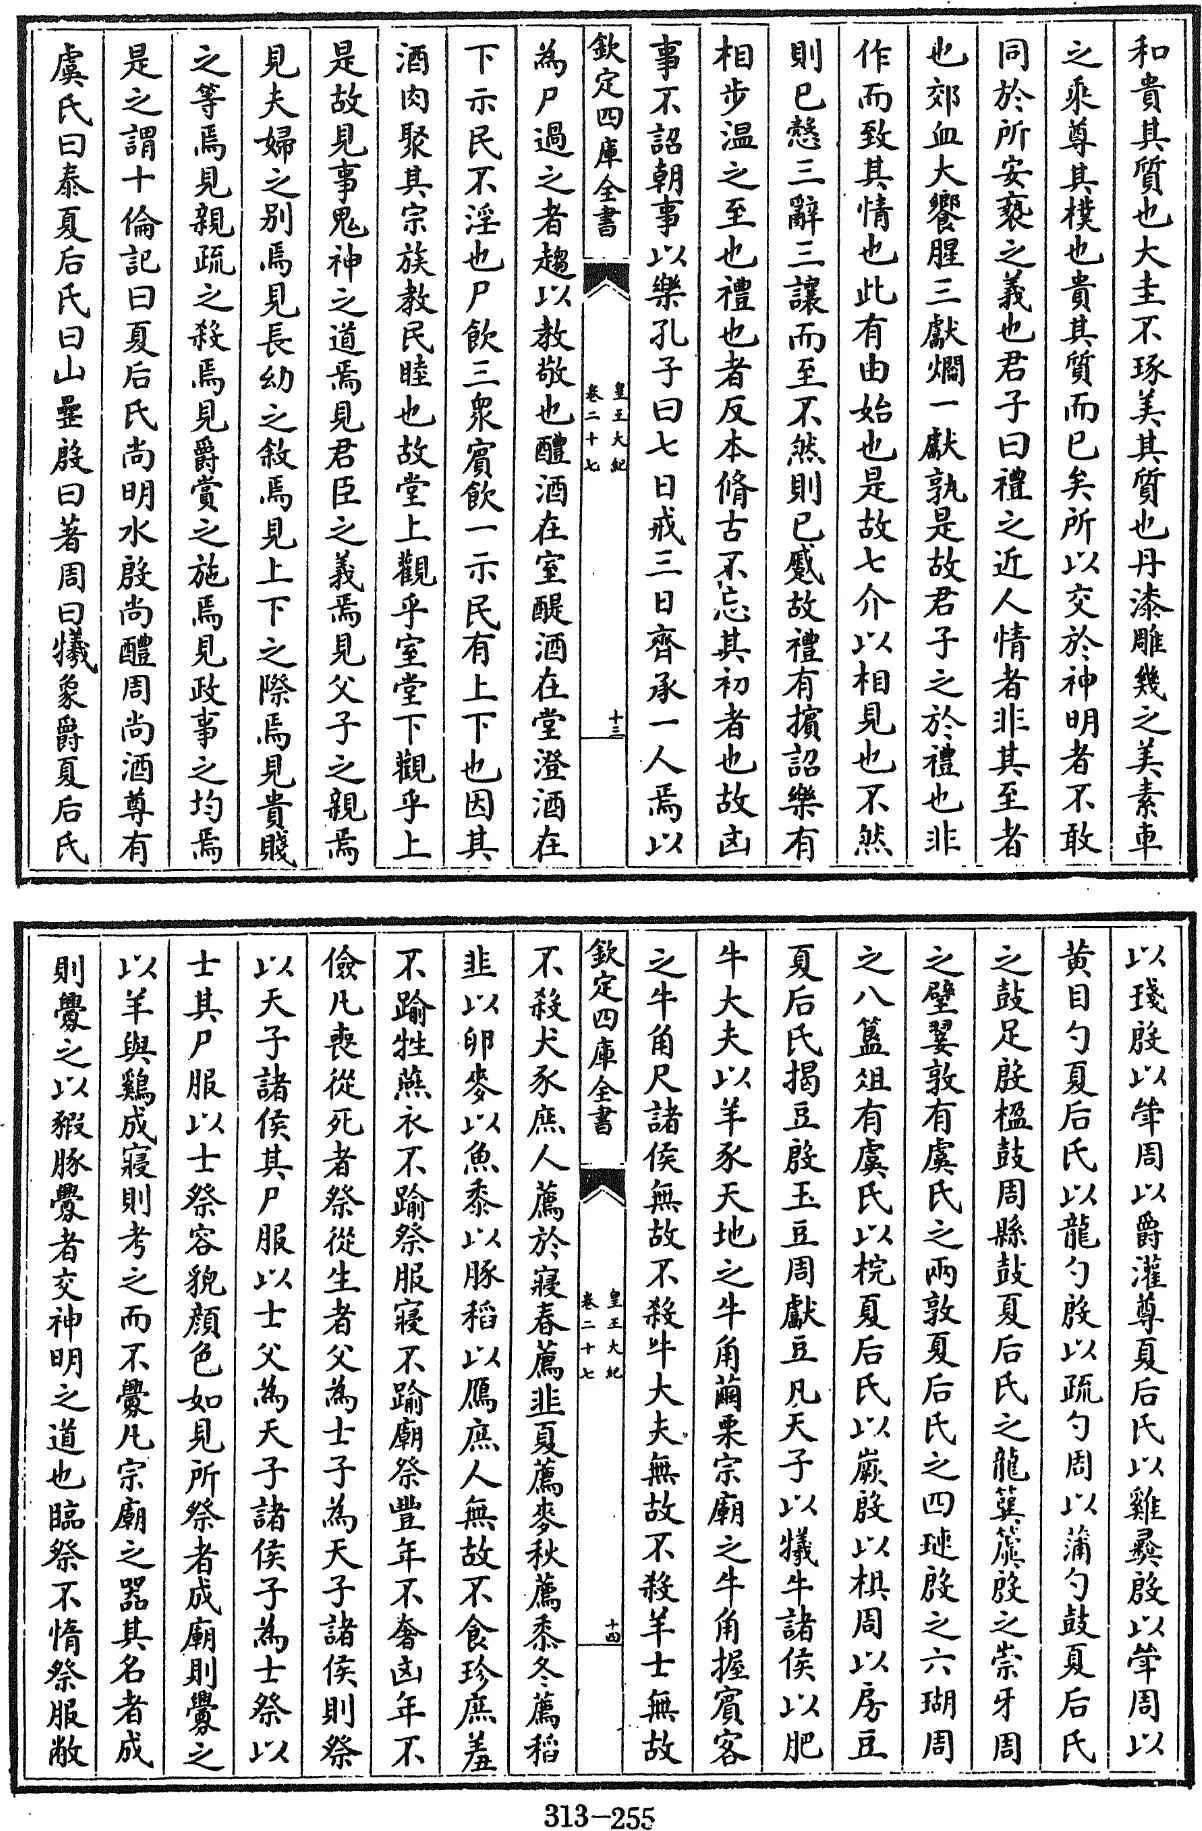 和貴其質也大圭不琢美其質也丹漆雕幾之美素車
之乘尊其樸也貴其質而已矣所以交於神明者不敢
同於所安褻之義也君子曰禮之近人情者非其至者
也郊血大饗腥三獻爓一獻孰是故君子之於禮也非
作而致其情也此有由始也是故七介以相見也不然
則已慤三辭三讓而至不然則已蹙故禮有擯詔樂有
相步溫之至也禮也者反本脩古不忘其初者也故凶
事不詔朝事以樂孔子曰七日戒三日齊承一人焉以
欽定四庫全書
皇王大紀
卷二十七
十三
為尸過之者趨以教敬也醴酒在室醍酒在堂澄酒在
下示民不淫也尸飲三衆賓飲一示民有上下也因其
酒肉聚其宗族教民睦也故堂上觀乎室堂下觀乎上
是故見事鬼神之道焉見君臣之義焉見父子之親焉
見夫婦之別焉見長幼之敘焉見上下之際焉見貴賤
之等焉見親疏之殺焉見爵賞之施焉見政事之均焉
是之謂十倫記曰夏后氏尚明水殷尚醴周尚酒尊有
虞氏曰泰夏后氏曰山罍殷曰著周曰犧象爵夏后氏
以琖殷以斝周以爵灌尊夏后氏以雞彞殷以斝周以
黃目勺夏后氏以龍勺殷以疏勺周以蒲勺鼓夏后氏
之鼓足殷楹鼓周縣鼓夏后氏之龍簨簴殷之崇牙周
之璧翣敦有虞氏之兩敦夏后氏之四璉殷之六瑚周
之八簋俎有虞氏以梡夏后氏以嶡殷以棋周以房豆
夏后氏揭豆殷玉豆周獻豆凡天子以犧牛諸侯以肥
牛大夫以羊豕天地之牛角繭栗宗廟之牛角握賓客
之牛角尺諸侯無故不殺牛大夫無故不殺羊士無故
欽定四庫全書
皇王大紀
卷二十七
十四
不殺犬豕庶人薦於寢春薦韭夏薦麥秋薦黍冬薦稻
韭以卵麥以魚黍以豚稻以鴈庶人無故不食珍庶羞
不踰牲燕衣不踰祭服寢不踰廟祭豐年不奢凶年不
儉凡喪從死者祭從生者父為士子為天子諸侯則祭
以天子諸侯其尸服以士父為天子諸侯子為士祭以
士其尸服以士祭容貌顏色如見所祭者成廟則釁之
以羊與鷄成寢則考之而不釁凡宗廟之器其名者成
則釁之以豭豚釁者交神明之道也臨祭不惰祭服敝
313-255